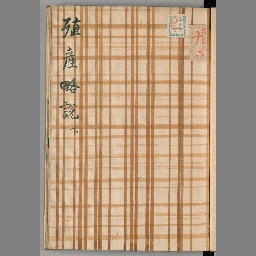 殖産略説 下